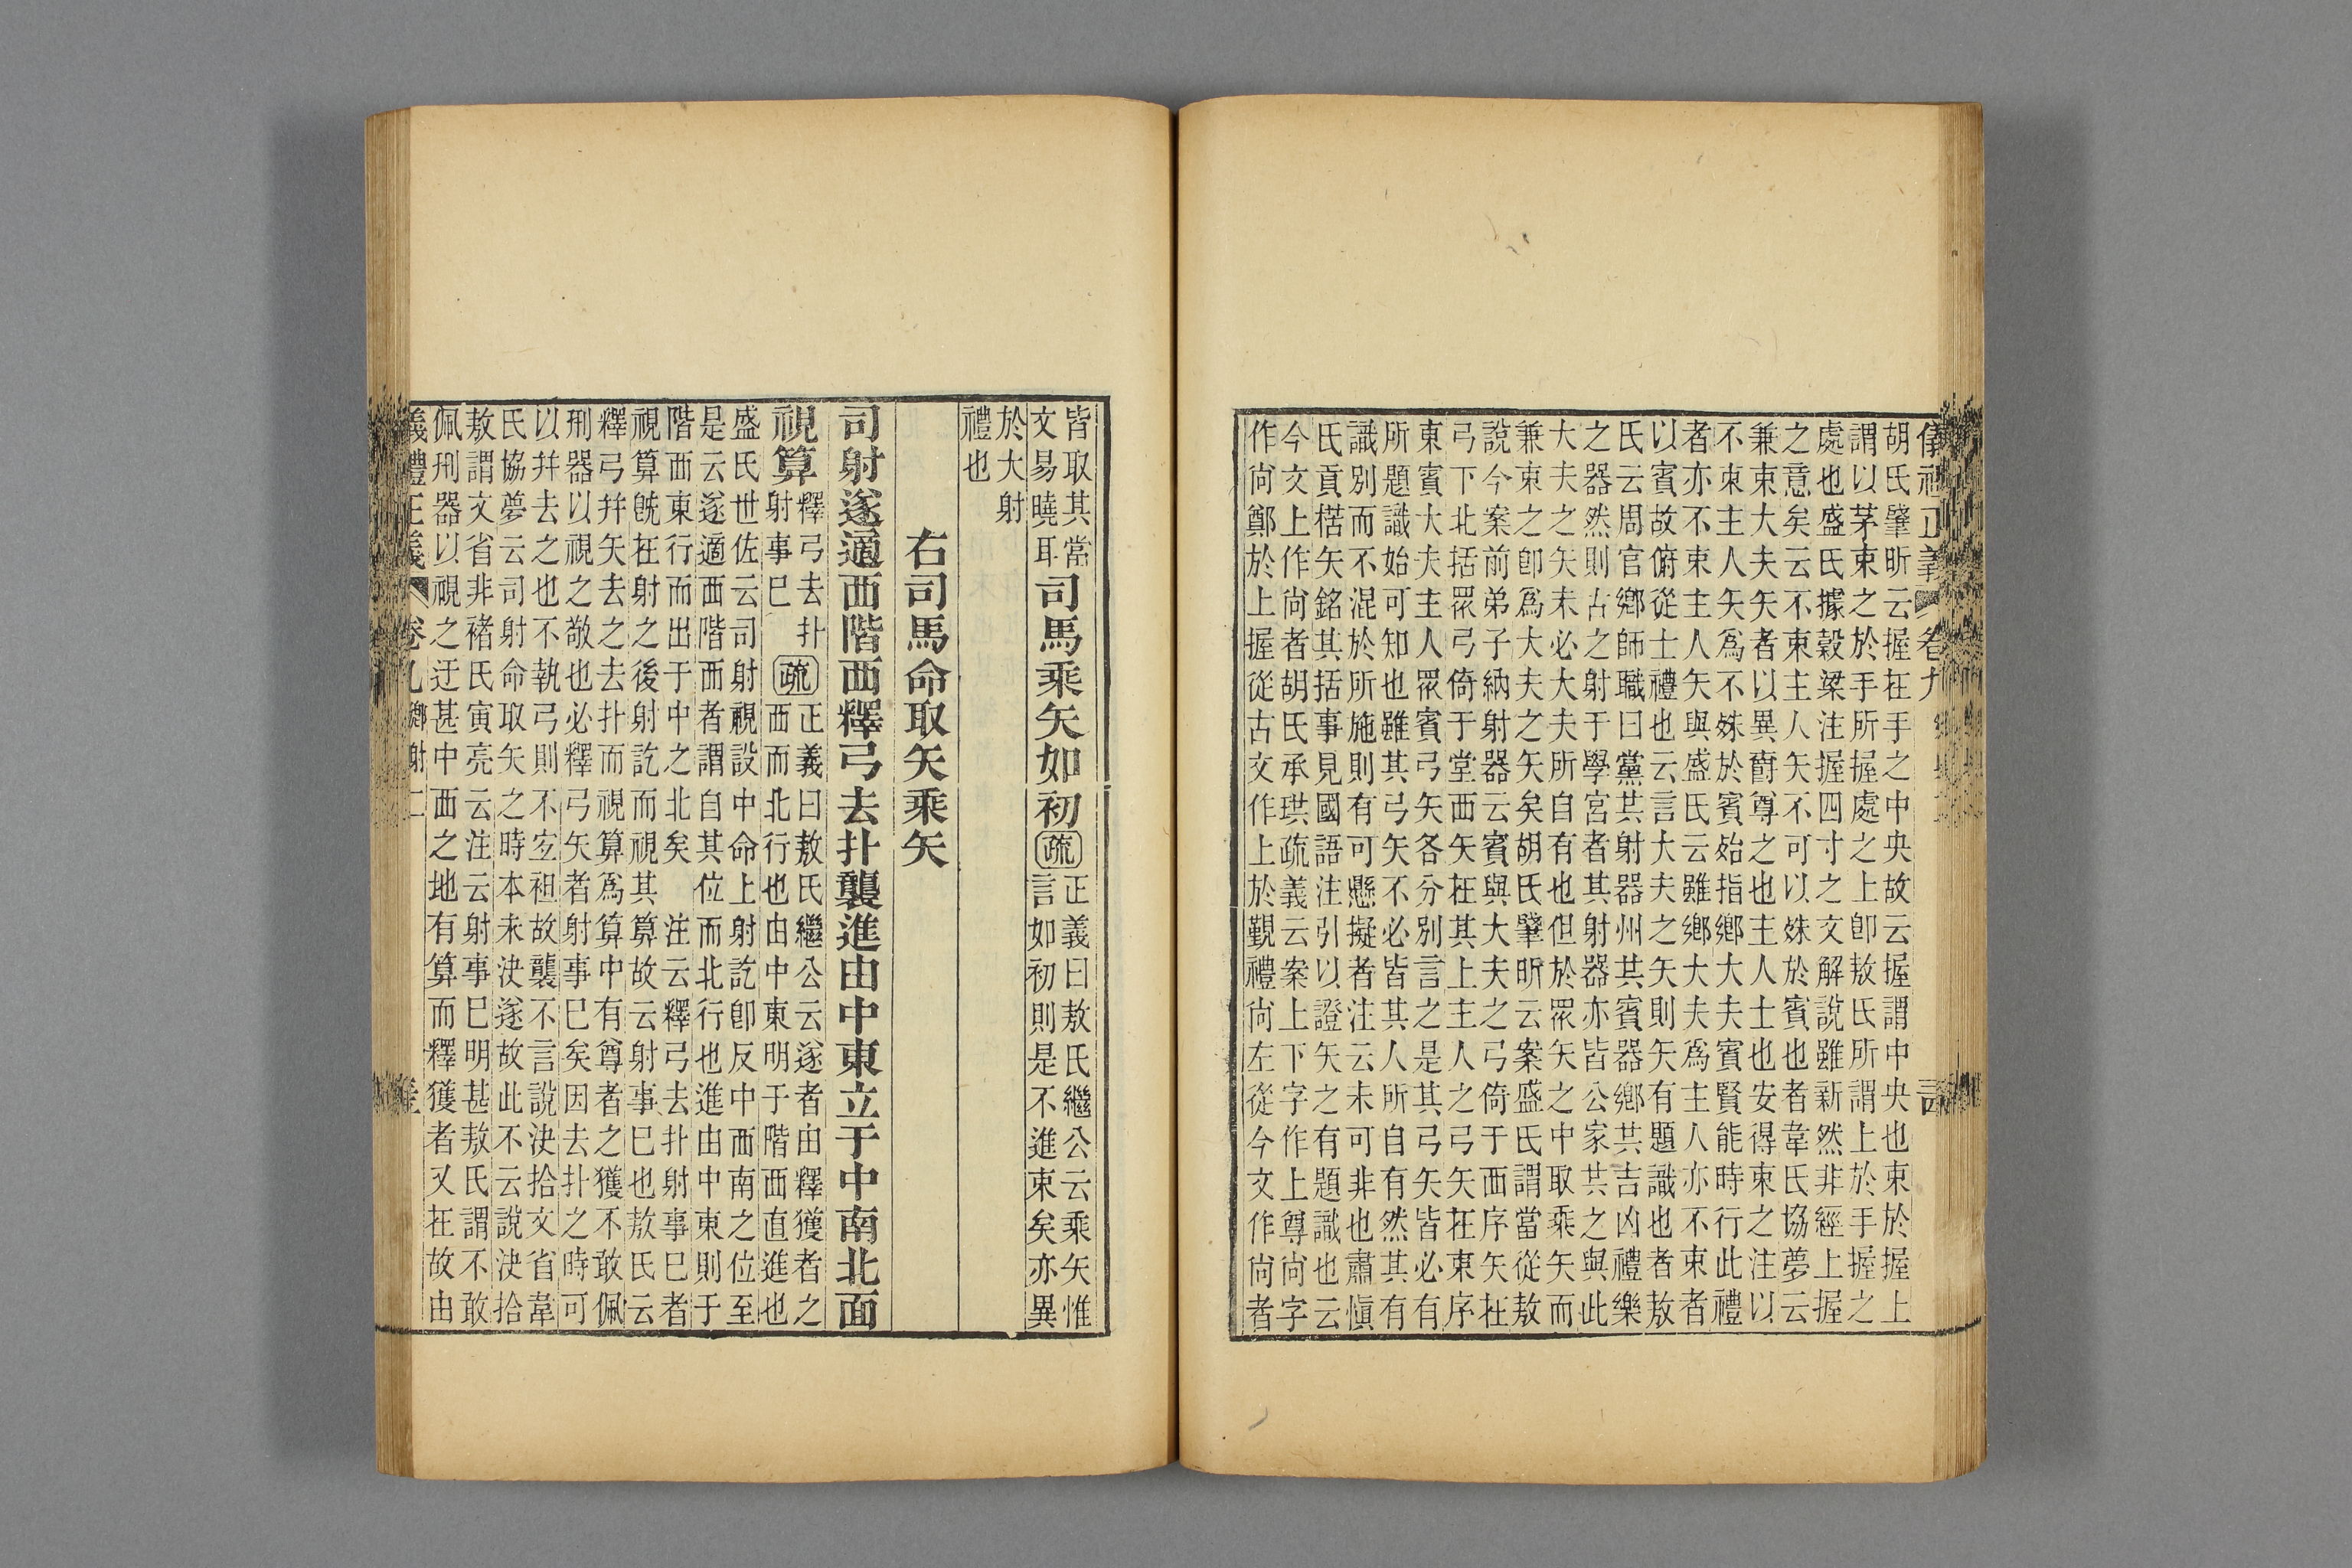 儀禮正義 卷九
胡氏肇昕云握在手之中央故云握謂中央也束於握上
謂以茅束之於手所握處之上卽敖氏所謂上於手握之
處也盛氏據穀梁注握四寸之文解說雖新然非經上握
之意矣云不束主人矢不可以殊於賓也者韋氏協夢云
兼束大夫矢者以異爵尊之也主人士也安得束之注以
不束主人矢爲不殊於賓殆指鄉大夫賓賢能時行此禮
者亦不束主人矢與盛氏云雖鄉大夫爲主人亦不束者
以賓故俯從士禮也云言大夫之矢則矢有題識也者敖
氏云周官鄉師職曰黨共射器州共賓器鄉共吉凶禮樂
之器然則古之射于學宮者其射器亦皆公家共之與此
大夫之矢未必大夫所自有也但於眾矢之中取乘矢而
兼束之卽爲大夫之矢矣胡氏肇昕云案盛氏謂當從敖
說今案前弟子納射器云賓與大夫之弓倚于西序矢在
弓下北括眾弓倚于堂西矢在其上主人之弓矢在東序
東賓大夫主人眾賓弓矢各分別言之是其弓矢皆必有
所題識始可知也雖其弓矢不必皆其人所自有然其有
識別而不混於所施則有可懸擬者注云未可非也肅慎
氏貢楛矢銘其括事見國語注引以證矢之有題識也云
今文上作尙者胡氏承珙疏義云案上下字作上尊尙字
作尙鄭於上握從古文作上於覲禮尙左從今文作尙者
皆取其常
文易曉耳
司馬乘矢如初 疏
正義曰敖氏繼公云乘矢惟
言如初則是不進束矣亦異
於大射
禮也
右司馬命取矢乘矢
司射遂適西階西釋弓去扑襲進由中東立于中南北面
視算
釋弓去扑
射事已
疏
正義曰敖氏繼公云遂者由釋獲者之
西而北行也由中東明于階西直進也
盛氏世佐云司射視設中命上射訖卽反中西南之位至
是云遂適西階西者謂自其位而北行也進由中東則于
階西東行而出于中之北矣 注云釋弓去扑射事已者
視算旣在射之後射訖而視其算故云射事已也敖氏云
釋弓幷矢去之去扑而視算爲算中有尊者之獲不敢佩
刑器以視之敬也必釋弓矢者射事已矣因去扑之時可
以幷去之也不執弓則不宜袒故襲不言說決拾文省韋
氏協夢云司射命取矢之時本未決遂故此不云說決拾
敖謂文省非褚氏寅亮云注云射事已明甚敖氏謂不敢
佩刑器以視之迂甚中西之地有算而釋獲者又在故由
義禮正義 卷九 鄉射二